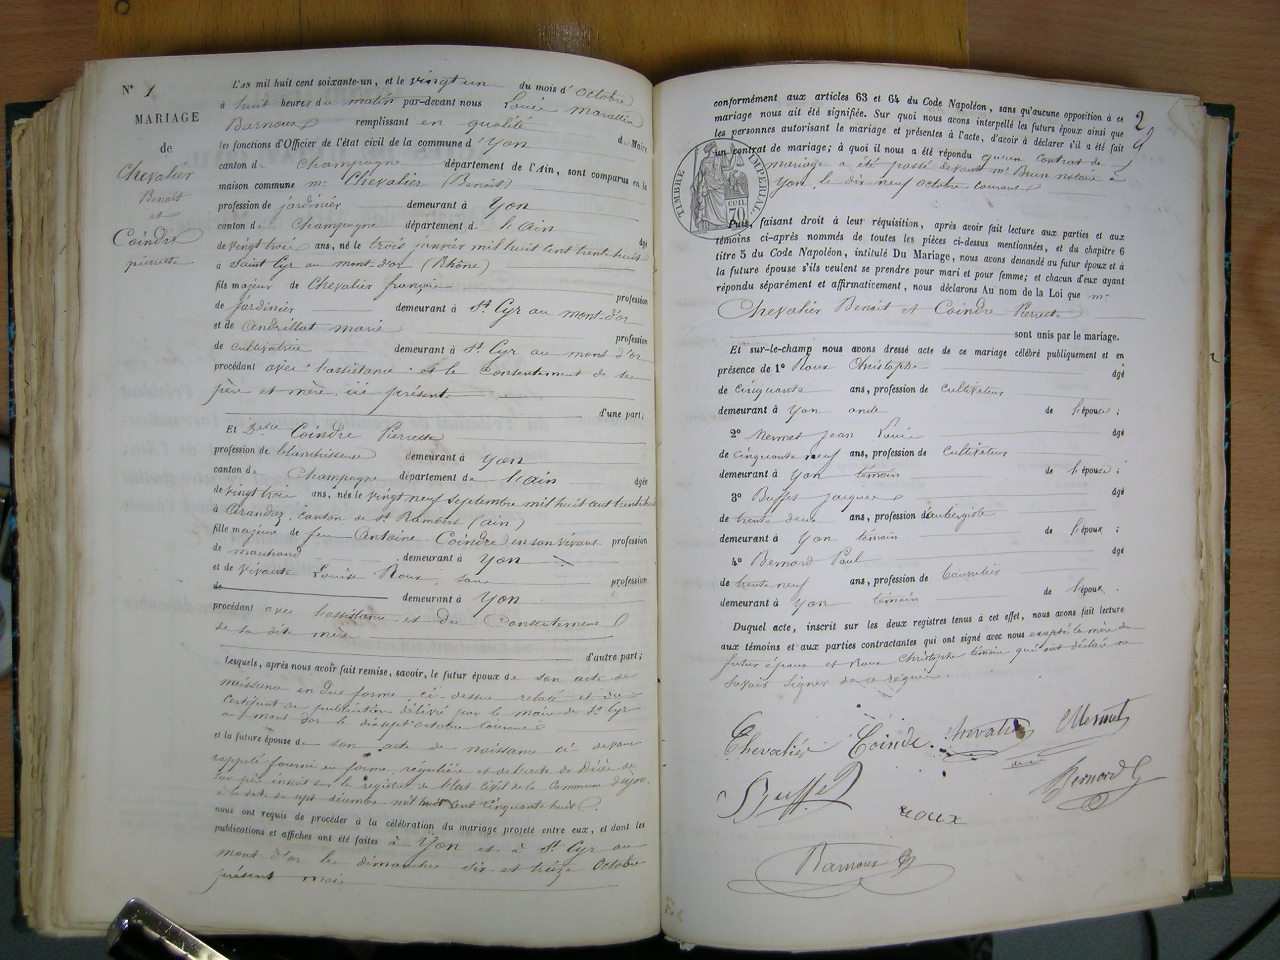 N° 1
MARIAGE
de
Chevalier
Benoit
et
Coindre
pierrette
L'an mil huit cent soixante-un, et le vingt un du mois d'octobre
à huit heures du matin par-devant nous Louis
Barnoux remplissant en qualité de Maire
les fonctions d'Officier de l'état civil de la commune d'Yon
canton de Champagne département de l'Ain, sont comparus en la
maison commune mr Chevalier (Benoit)
profession de jardinier demeurant à Yon
canton de Champagne département de l'ain âgé
de vingt trois ans, né le trois janvier mil huit cent trente huit
à Saint Cyr au mont-d'or (Rhône)
fils majeur de Chevalier françois profession
de jardinier demeurant à St Cyr au mont-d'or
et de Andrillat marie profession
de cultivatrice demeurant à St Cyr au mont d'or
procédant avec l'assistance et le Consentement de ses
père et mère ici présent
d'une part;
Et Dlle Coindre Pierrette
profession de blanchisseuse demeurant à Yon
canton de Champagne département de l'ain âgée
de vingt trois ans, née le vingt neuf septembre mil huit cent trente huit
à Arandas canton de St Rambert (ain)
fille majeure de feu Antoine Coindre en son vivant profession
de marchand demeurant à Yon
et de vivante Louise Roux, sans profession
de demeurant à Yon
procédant avec l'assistance et du Consentement
de sa dite mère
d'autre part;
Lesquels, après nous avoir fait remise, savoir, le futur époux de son acte de
naissance en due forme, ci-dessus relaté et du
certificat de publication délivré par le maire de St Cyr
au mont d'or le dix sept octobre courant
et la future épouse de son acte de naissance ci dessus
rappelé fourni en forme régulière et de l'acte de décès de
son père inscrit sur le registre de l'état civil de la Commune d'yon
à la date du sept décembre mil huit cent cinquante huit
nous ont requis de procéder à la célébration du mariage projeté entre eux, et dont les
publications et affiches ont été faites à Yon et à St Cyr au
mont-d'or les dimanches six et treize octobre
présent mois
2
conformément aux articles 63 et 64 du Code Napoléon, sans qu'aucune opposition à ce
mariage nous ait été signifiée. Sur quoi nous avons interpellé les futurs époux ainsi que
les personnes autorisant le mariage et présentes à l'acte, d'avoir à déclarer s'il a été fait
un contrat de mariage; à quoi il nous a été répondu qu'un contrat de
mariage a été passé devant mr Brun notaire à
Yon le dix neuf octobre courant
TIMBRE IMPÉRIAL
70
Puis, faisant droit à leur réquisition, après avoir fait lecture aux parties et aux
témoins ci-après nommés de toutes les pièces ci-dessus mentionnées, et du chapitre 6
titre 5 du Code Napoléon, intitulé Du Mariage, nous avons demandé au futur époux et à
la future épouse s'ils veulent se prendre pour mari et pour femme; et chacun d'eux ayant
répondu séparément et affirmativement, nous déclarons Au nom de la Loi que mr
Chevalier Benoit et Coindre Pierrette
sont unis par le mariage.
Et sur-le-champ nous avons dressé acte de ce mariage célébré publiquement et en
présence de 1° Roux Christophe âgé
de cinquante ans, profession de cultivateur
demeurant à Yon oncle de l'épouse;
2° Mermet Jean Louis âgé
de cinquante neuf ans, profession de cultivateur
demeurant à Yon témoin de l'épouse;
3° Buffet Jacques âgé
de trente deux ans, profession d'aubergiste
demeurant à Yon témoin de l'époux;
4° Bernard Paul âgé
de trente neuf ans, profession de
demeurant à Yon témoin de l'époux.
Duquel acte, inscrit sur les deux registres tenus à cet effet, nous avons fait lecture
aux témoins et aux parties contractantes qui ont signé avec nous excepté la mère du
futur époux et Roux Christophe témoin qui ont déclaré ne
savoir signer de ce requis
Chevalier Coindre Chevalier Mermet
Buffet roux Bernard
Barnoux